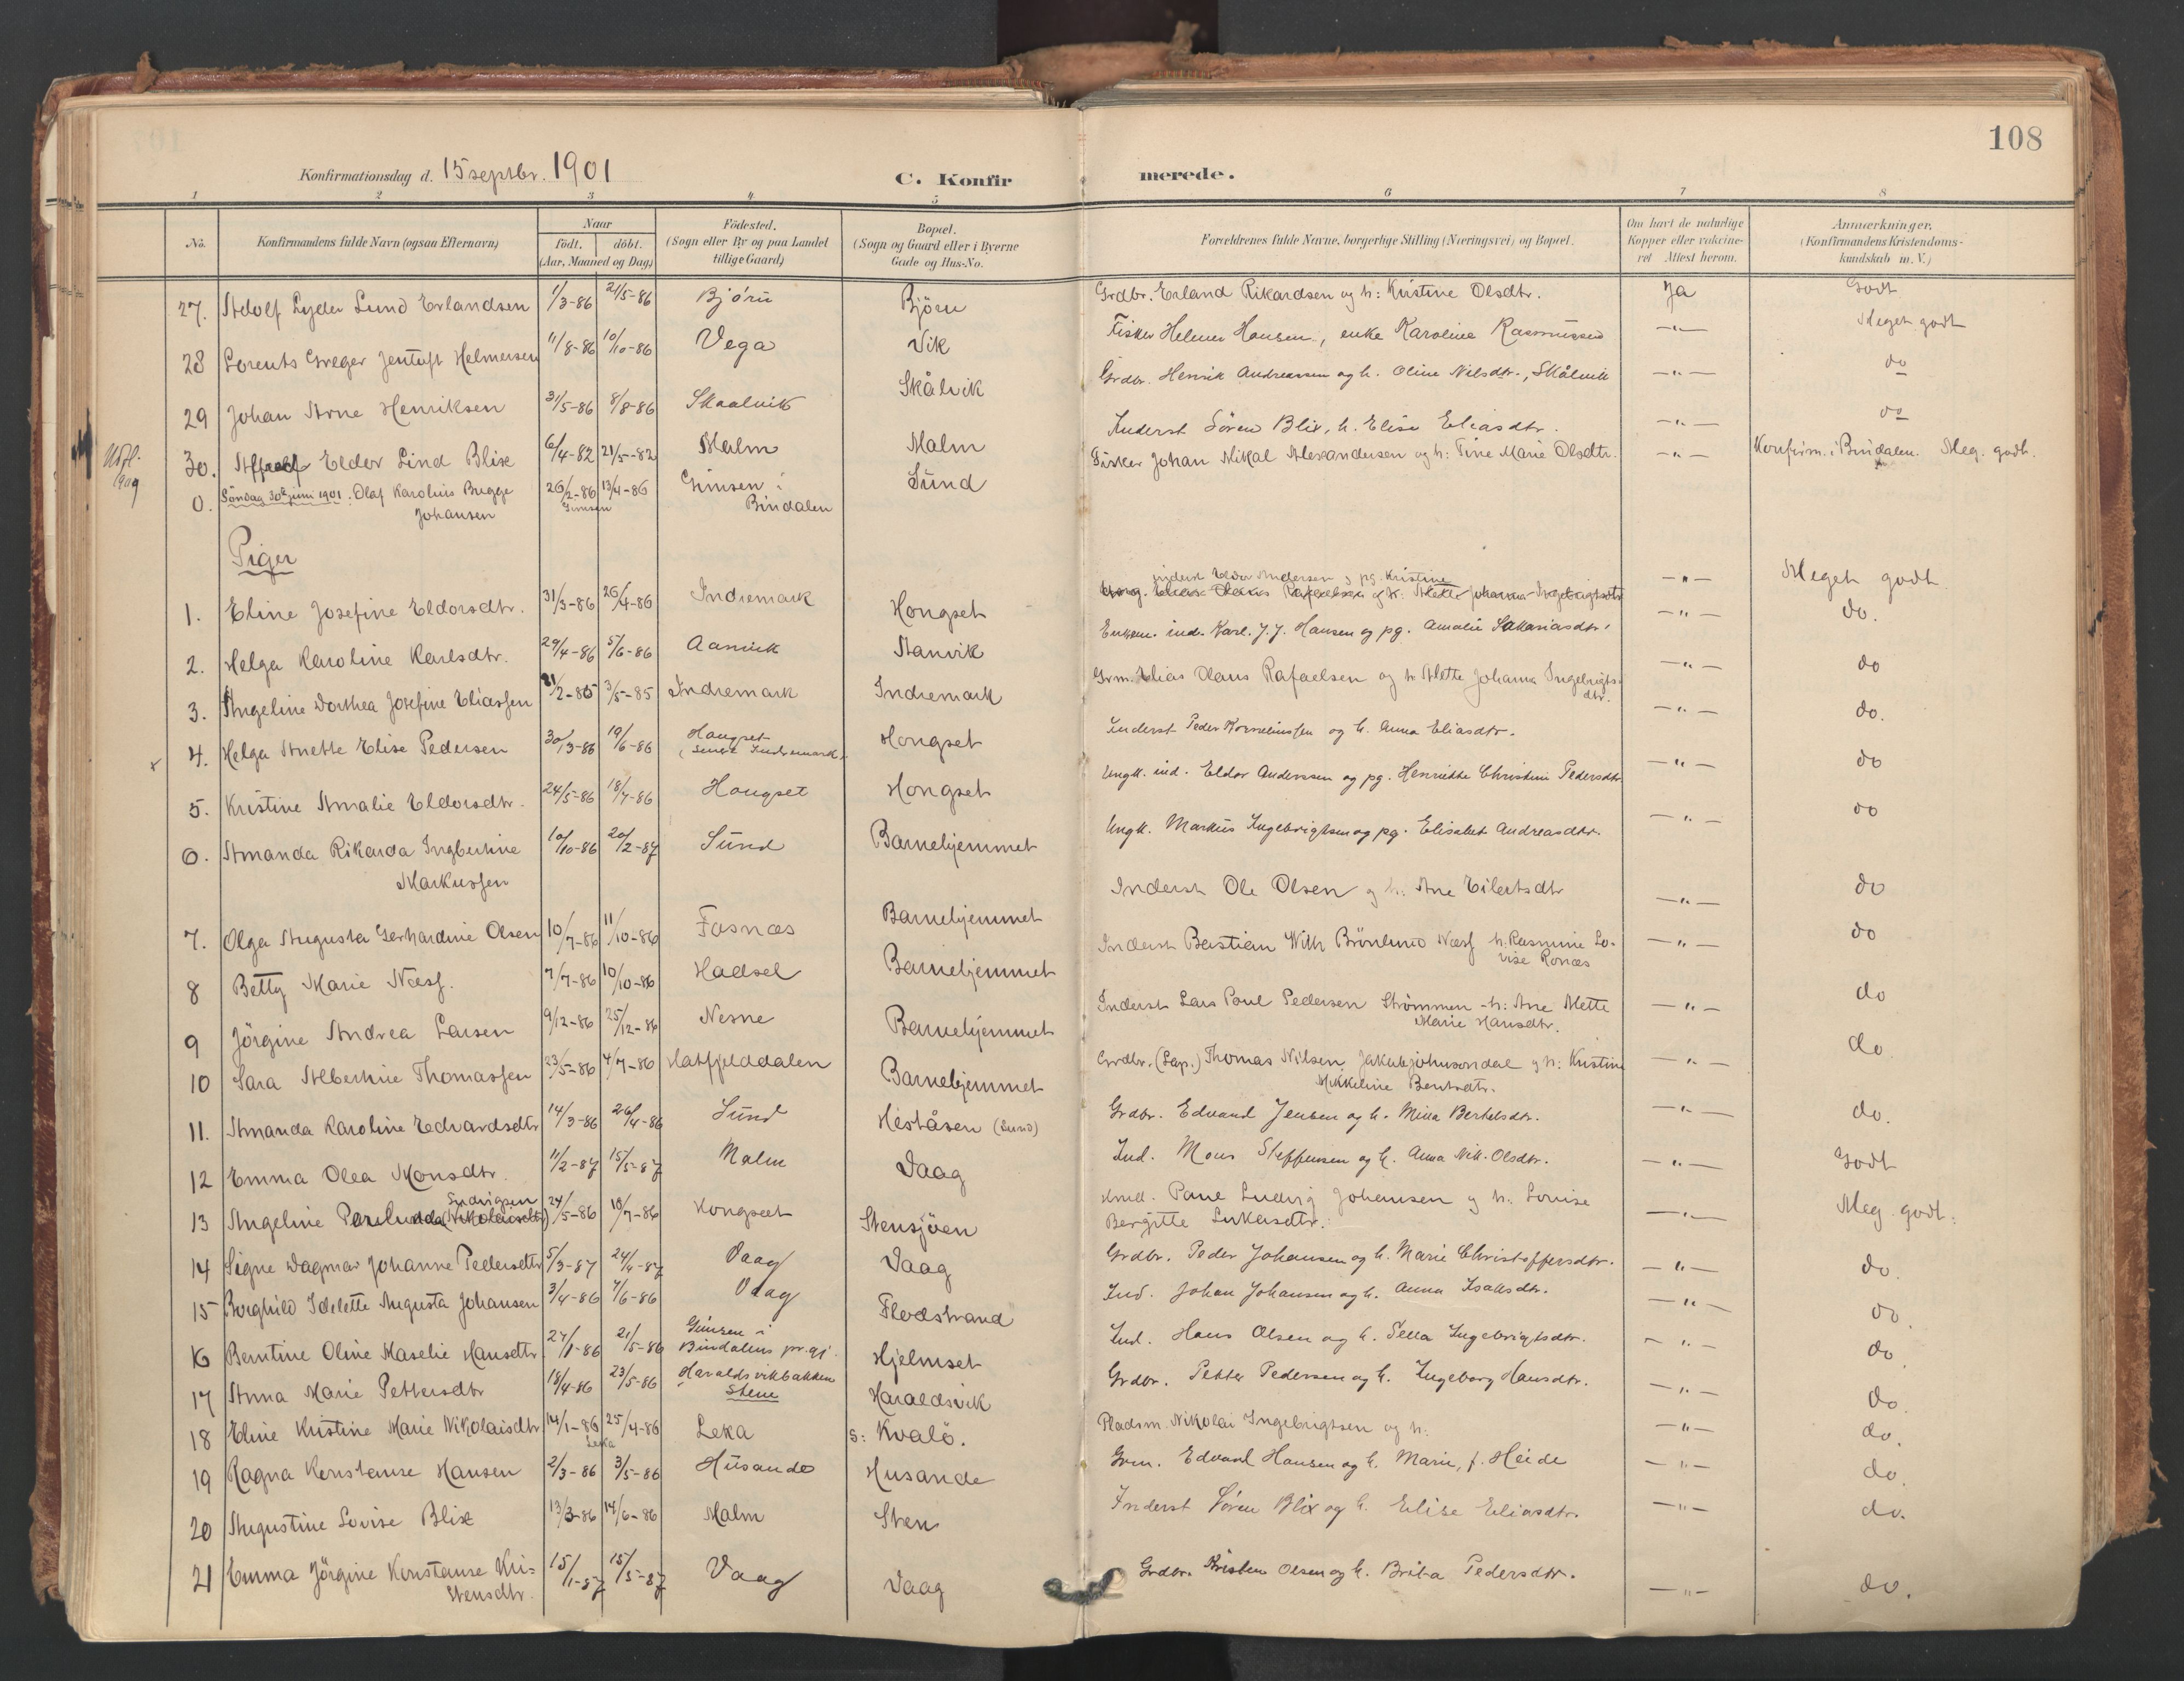 108
Konfirmationsdag d. 15 septbr. 1901 C. Konfirmerede.
1 2 3 4 5 6 7 8
No. Konfirmandens fulde Navn (ogsaa Efternavn) Naar födt. döbt. (Aar, Maaned og Dag) Födested. (Sogn eller By og paa Landet tillige Gaard) Bopæl. (Sogn og Gaard eller i Byerne Gade og Hus-No. Forældrenes fulde Navne, borgerlige Stilling (Næringsvei) og Bopæl. Om havt de naturlige Kopper eller vaccineret Attest herom. Anmærkninger. (Konfirmandens Kristendomskundskab m. V.)
27. Adolf Lyder Lund Erlandsen 1/3-86 21/5-86 Bjørn Björn Grdbr. Erland Rikardsen og h: Kristine Olsdtr. Ja Godt
28 Lorents Greger Jentoft Helmersen 11/8-86 10/10-86 Vega Vik Fisker Helmer Hansen, enke Karoline Rasmussen —"— Meget godt
29 Johan Arne Henriksen 31/5-86 8/8-86 Skaalvik Skålvik Grdbr. Henrik Andreassen og h. Oline Nilsdtr., Skålvik —"— do
Utfl. 1909
30. Eldor Lind Blix 6/4-82 21/5-82 Malm Malm Inderst Sören Blix, h. Elise Eliasdtr. —"— do
0. Söndag 30te juni 1901. Olaf Karolius Bugge Johansen 26/2-86 13/4-86 Gimsen Gimsen i Bindalen Sund Fisker Johan Mikal Alexandersen og h: Tine Marie Olsdtr. —"— Konfirm. i Bindalen. Meg. godt.
Piger
1. Eline Josefine Eldorsdtr. 31/3-86 26/4-86 Indremark Hongset inderst Eldor Andersen og pg. Kristine —"— Meget godt
2. Helga Karoline Karlsdtr. 29/4-86 5/6-86 Aanvik Aanvik Enkem. ind. Karl. J. J. Hansen og pg. Amalie Sakariasdtr. —"— do.
3. Angeline Dorthea Josefine Eliassen 21/2-85 3/5-85 Indremark Indremark Grm. Elias Olaus Rafaelsen og h. Alette Johanna Ingebrigtsdtr. —"— do
x 4. Helga Anette Elise Pedersen 30/3-86 19/6-86 Hongset Indremark Hongset Inderst Peder Kornelinssen og h. Anna Eliasdtr. —"— do.
5. Kristine Amalie Eldorsdtr. 24/5-86 18/7-86 Hongset Hongset Ungk. ind. Eldor Anderssen og pg. Henriette Christine Pedersdtr —"— do
6. Amanda Rikarda Ingbertine Markussen 10/10-86 20/2-87 Sund Barnehjemmet Ungk. Markus Ingebrigtsen og pg. Elisabet Andreasdtr. —"— do
7. Olga Augusta Gerhardine Olsen 10/7-86 11/10-86 Fosnæs Barnehjemmet Inderst Ole Olsen og h: Ane Eilertsdtr —"— do
8 Betty Marie Næss. 7/7-86 10/10-86 Hadsel Barnehjemmet Inderst Bastian With Brönlund Næss h: Rasmine Lovise Ronæs —"— do
9 Jörgine Andrea Larsen 9/12-86 25/12-86 Nesne Barnehjemmet Inderst Lars Poul Pedersen Strömmen - h: Ane Mette Marie Hansdtr. —"— do
10 Sara Albertine Thomassen 23/5-86 4/7-86 Hatfjelddalen Barnehjemmet Grdbr. (Lap.) Thomas Nilsen Jakobjohnsondal og h: Kristine Mikkeline Bentsdtr. —"— do
11. Amanda Karoline Edvardsdtr 14/3-86 26/4-86 Sund Heståsen (Sund) Grdbr. Edvard Jensen og h. Mina Bertelsdtr. —"— do.
12 Emma Olea Monsdtr. 11/2-87 15/5-87 Malm Vaag Ind. Mons Steffensen og h. Anna Nik. Olsdtr. —"— Godt
13 Angeline Paulinda (Nikolaisdtr) Ludvigsen 24/5-86 18/7-86 Kongset Stensjöen Paul Ludvig Johansen og h. Lovise Bergitte Lukasdtr. —"— Meg. godt:
14 Signe Dagmar Johanne Pedersdtr 5/3-87 24/4-87 Vaag Vaag Grdbr. Peder Johansen og h. Marie Christoffersdtr. —"— do.
15 Borghild Idelette Augusta Johansen 3/4-86 7/6-86 Vaag Flodstrand Ind. Johan Johansen og h. Anna Isaksdtr. —"— do.
16 Berntine Oline Maselie Hansdtr 27/1-86 21/5-86 Gimsen i Bindalens pr.gj. Hjelmset Ind. Hans Olsen og h. Pella Ingebrigtsdtr. —"— do.
17 Anna Marie Pettersdtr 18/4-86 23/5-86 Haraldsvikbakken Stene Haraldsvik Grdbr. Petter Pedersen og h. Ingeborg Hansdtr. —"— do.
18 Eline Kristine Marie Nikolaisdtr 14/1-86 25/4-86 Leka Leka s: Kvalö. Pladsm. Nikolai Ingebrigtsen og h: —"— do.
19 Ragna Konstanse Hansen 2/3-86 3/5-86 Husande Husande Grm. Edvard Hansen og h. Marie, f. Heide —"— do.
20 Augustine Lovise Blix 13/3-86 14/6-86 Malm Sten Inderst Sören Blix og h. Elise Eliasdtr. —"— do.
21 Emma Jörgine Konstanse Kristensdtr. 15/1-87 15/5-87 Vaag Vaag Grdbr. Kristen Olsen og h. Brita Pedersdtr. —"— do.